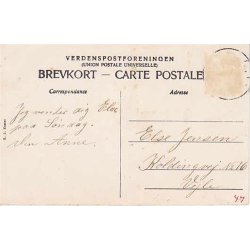 VERDENSPOSTFORENINGEN
(UNION POSTALE UNIVERSELLE)
BREVKORT — CARTE POSTALE
Correspondance
Adresse
Jeg venter dig Else
paa Søndag.
Din Anne.
Else Jensen
Koldingvej No 16
Vejle
47